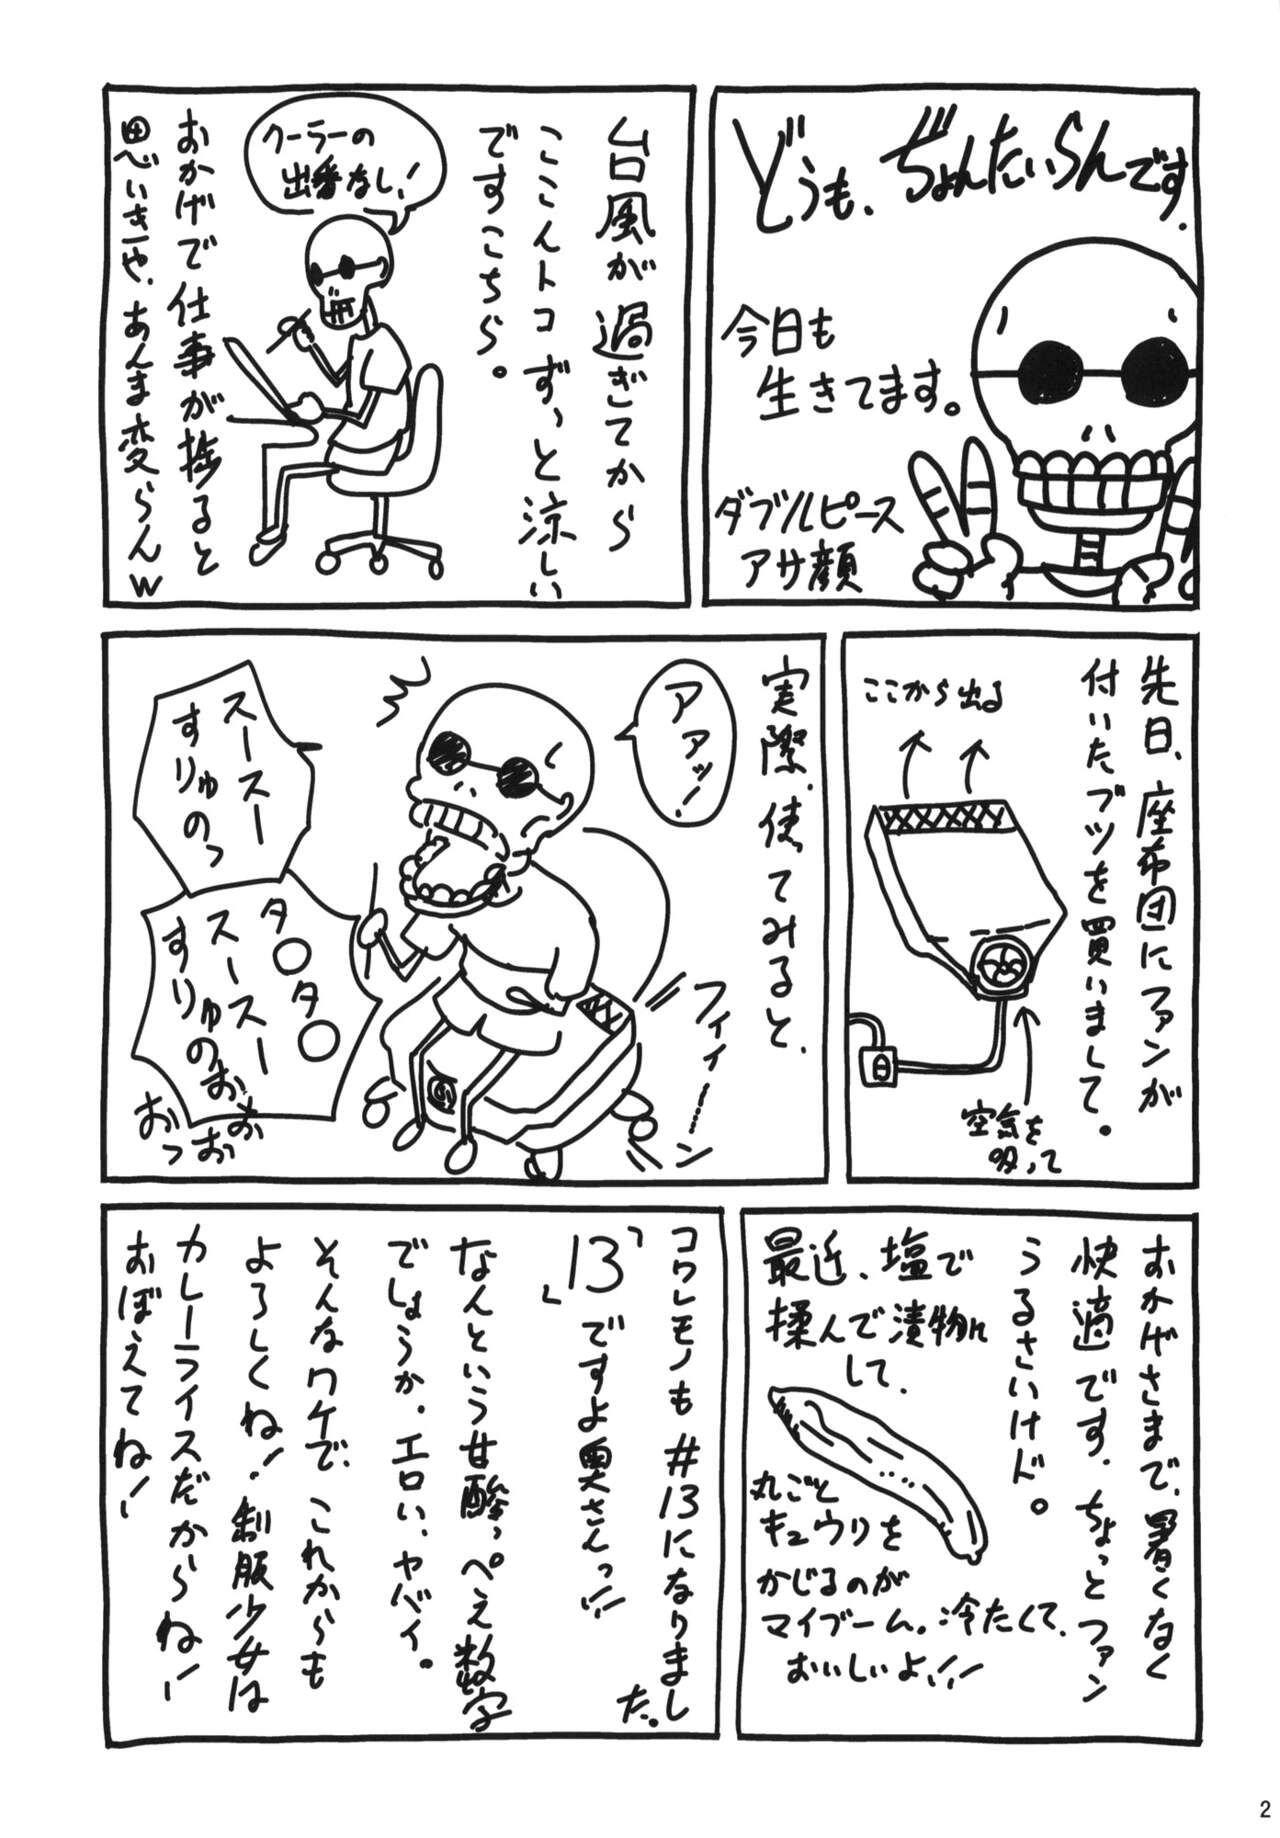 どうも、ぢょんたいらんです。
今日も
生きてます。
ダブルピース
アサ顔
台風が過ぎてから
ここんトコずっと涼しい
ですこちら。
クーラーの
出番なし!
おかげで仕事が捗ると
思いきや、あんま変らんw
先日、座布団にファンが
付いたブツを買いまして。
ここから出る
空気を
吸って
実際、使ってみると、
アアッ!
フィィーーン
スースー
すりゅのっ
タ〇タ〇
スースー
すりゅのおお
おおおっ
おかげさまで、暑くなく
快適です。ちょっとファン
うるさいけど。
最近、塩で
揉んで漬物に
して、
丸ごと
キュウリを
かじるのが
マイブーム。冷たくて、
おいしいよ!!
コワレモノも#13になりました。
「13」ですよ奥さんっ!!
なんという甘酸っぺえ数字
でしょうか。エロい、ヤバイ。
そんなワケで、これからも
よろしくね!制服少女は
カレーライスだからね!
おぼえてね!
2